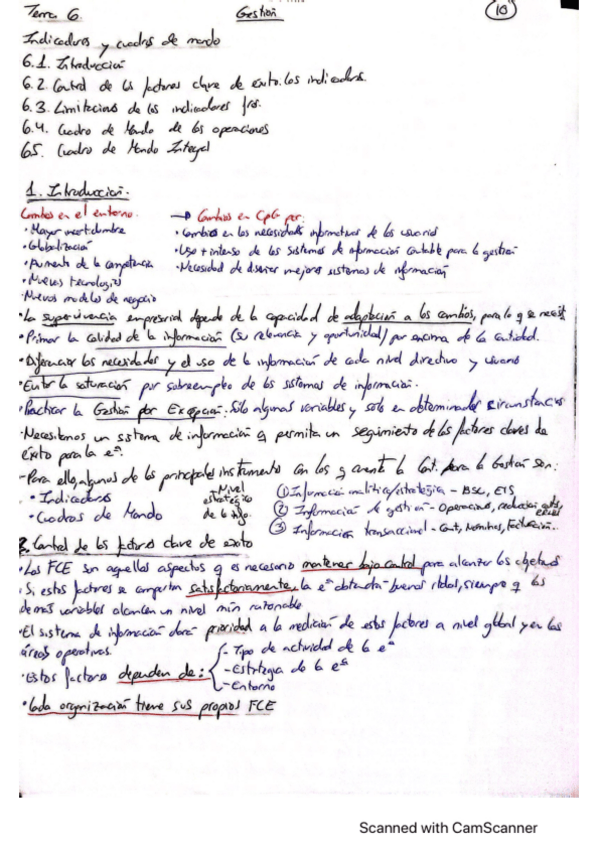 Tema 6 Gestión 10
Indicadores y cuadros de mando
6.1. Introducción
6.2. Control de los factores clave de éxito. Los indicadores.
6.3. Limitaciones de los indicadores fros.
6.4. Cuadro de Mando de las operaciones
6.5. Cuadro de Mando Integral
1. Introducción.
Cambios en el entorno: → Cambios en CpG por:
· Mayor incertidumbre · Cambios en las necesidades informativas de los usuarios
· Globalización · Uso + intenso de los sistemas de información contable para la gestión
· Aumento de la competencia · Necesidad de diseñar mejores sistemas de información
· Nuevas tecnologías
· Nuevos modelos de negocio
· La supervivencia empresarial depende de la capacidad de adaptación a los cambios, para lo q se necesit.
· Primar la calidad de la información (su relevancia y oportunidad) por encima de la cantidad.
· Diferenciar las necesidades y el uso de la información de cada nivel directivo y usuario
· Evitar la saturación por subempleo de los sistemas de información.
· Practicar la Gestión por Excepción: Sólo algunas variables y solo en determinadas circunstancias
· Necesitamos un sistema de información q permita un seguimiento de los factores claves de
éxito para la eª.
- Para ello, algunos de los principales instrumento con los q cuenta la Cont. para la Gestión son:
· Indicadores + Nivel ① Información analítica/estratégica - BSC, EIS
· Cuadros de Mando estratégico ② Información de gestión - Operaciones,
de la ③ Información transaccional - Cont, Nominas, Facturación..
2. Control de los factores clave de éxito
· Los FCE son aquellos aspectos q es necesario mantener bajo control para alcanzar los objetivos
· Si, estos factores se comportan satisfactoriamente, la eª obtendrá buenos rtdos, siempre q las
demás variables alcancen un nivel mín razonable
· El sistema de información dará prioridad a la medición de estos factores a nivel global y en las
áreas operativas.
· Estos factores dependen de: - Tipo de actividad de la eª
- Estrategia de la eª
- Entorno
· Cada organización tiene sus propios FCE
Scanned with CamScanner